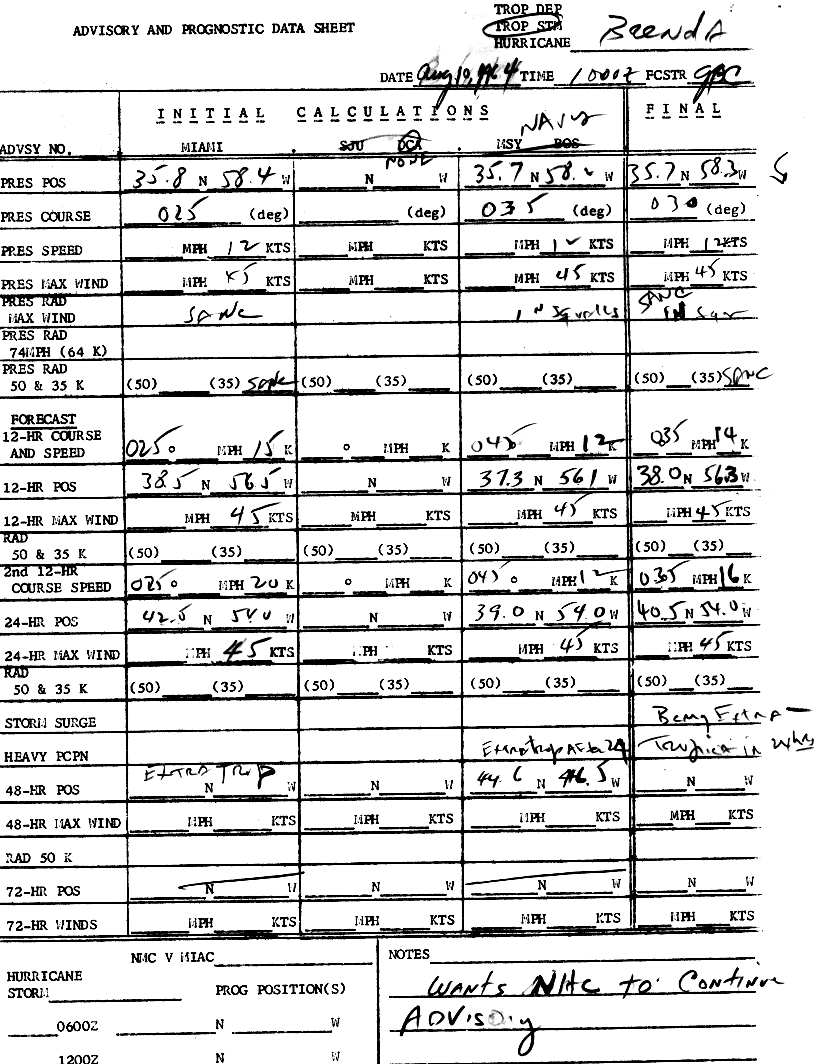 TROP DEP
ADVISORY AND PROGNOSTIC DATA SHEET TROP STM BrendA
HURRICANE
DATE Aug 10, 1964 TIME 1000Z FCSTR
INITIAL CALCULATIONS FINAL
NAVY
ADVSY NO. MIAMI SJU DCA MSY BOS
NONE
PRES POS 35.8 N 58.4 W N W 35.7 N 58. W 35.7 N 58.3 W
PRES COURSE 025 (deg) (deg) 035 (deg) 030 (deg)
PRES SPEED MPH 12 KTS MPH KTS MPH 12 KTS MPH 12 KTS
PRES MAX WIND MPH 45 KTS MPH KTS MPH 45 KTS MPH 45 KTS
PRES RAD
MAX WIND SANC IN Squalls SANC IN Squ
PRES RAD
74MPH (64 K)
PRES RAD
50 & 35 K (50) (35) SANC (50) (35) (50) (35) (50) (35) SANC
FORECAST
12-HR COURSE
AND SPEED 025 ° MPH 15 K ° MPH K 045 MPH 12 K 035 MPH 14 K
12-HR POS 38.5 N 56.5 W N W 37.3 N 561 W 38.0 N 56.3 W
12-HR MAX WIND MPH 45 KTS MPH KTS MPH 45 KTS MPH 45 KTS
RAD
50 & 35 K (50) (35) (50) (35) (50) (35) (50) (35)
2nd 12-HR
COURSE SPEED 025 ° MPH 20 K ° MPH K 045 ° MPH 12 K 035 MPH 16 K
24-HR POS 42.0 N 54.0 W N W 39.0 N 54.0 W 40.5 N 54.0 W
24-HR MAX WIND MPH 45 KTS MPH KTS MPH 45 KTS MPH 45 KTS
RAD
50 & 35 K (50) (35) (50) (35) (50) (35) (50) (35)
STORM SURGE Bcmg Extra-
HEAVY PCPN Extratrop After 24 Tropical in 24 hrs
48-HR POS EXTRA TROP N W N W 44.6 N 46.5 W N W
48-HR MAX WIND MPH KTS MPH KTS MPH KTS MPH KTS
RAD 50 K
72-HR POS N W N W N W N W
72-HR WINDS MPH KTS MPH KTS MPH KTS MPH KTS
NMC V MIAC NOTES
HURRICANE
STORM PROG POSITION(S) WANTS NHC to Continue
0600Z N W ADVISORY
1200Z N W